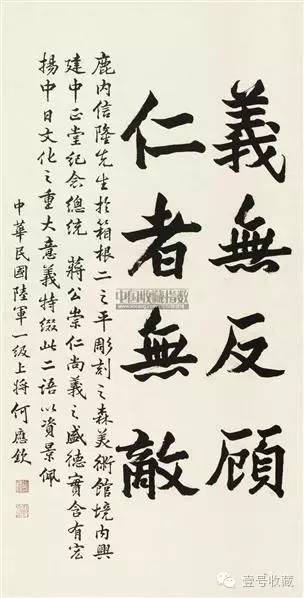 義無反顧
仁者無敵
鹿内信隆先生於箱根二之平彫刻之森美術館境内興
建中正堂紀念總統　蔣公崇仁尚義之盛德實含有宏
揚中日文化之重大意義特綴此二語以資景佩
中華民國陸軍一級上將何應欽
中国收藏指数
壹号收藏